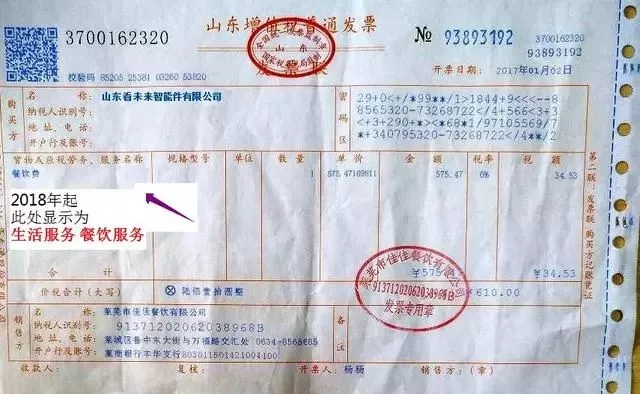 3700162320
山东增值税普通发票
№ 93893192
93893192
校验码 85205 25381 03260 53820
全国统一发票监制章
山东
国家税务局监制
开票日期：2017年01月02日
购买方
名称：山东看未来智能件有限公司
纳税人识别号：
地址、电话：
开户行及账号：
密码区
29+0<+/*99**/1>1844+9<<--8
8565320-73268722/4+566<3+3
<+3+290+*><*68*1/97105569/7
*+340795320-73268722/4**/2
货物或应税劳务、服务名称 规格型号 单位 数量 单价 金额 税率 税额
餐饮费 1 575.47169811 575.47 6% 34.53
2018年起
此处显示为
生活服务 餐饮服务
合计 ¥575 ¥34.53
价税合计（大写） ⊗ 陆佰壹拾圆整 ¥610.00
销售方
名称：莱芜市佳佳餐饮有限公司
纳税人识别号：91371202062038968B
地址、电话：莱城区鲁中东大街与万福路交汇处 0634-8565685
开户行及账号：莱商银行丰华支行803011501421004100
备注
莱芜市佳佳餐饮有限公司
91371202062038968B
发票专用章
收款人： 复核： 开票人：杨杨 销售方：（章）
第二联：发票联 购买方记账凭证